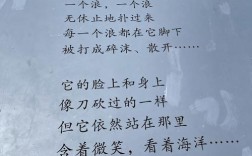 一个浪，一个浪
无休止地扑过来
每一个浪都在它脚下
被打成碎沫、散开……
它的脸上和身上
像刀砍过的一样
但它依然站在那里
含着微笑，看着海洋……